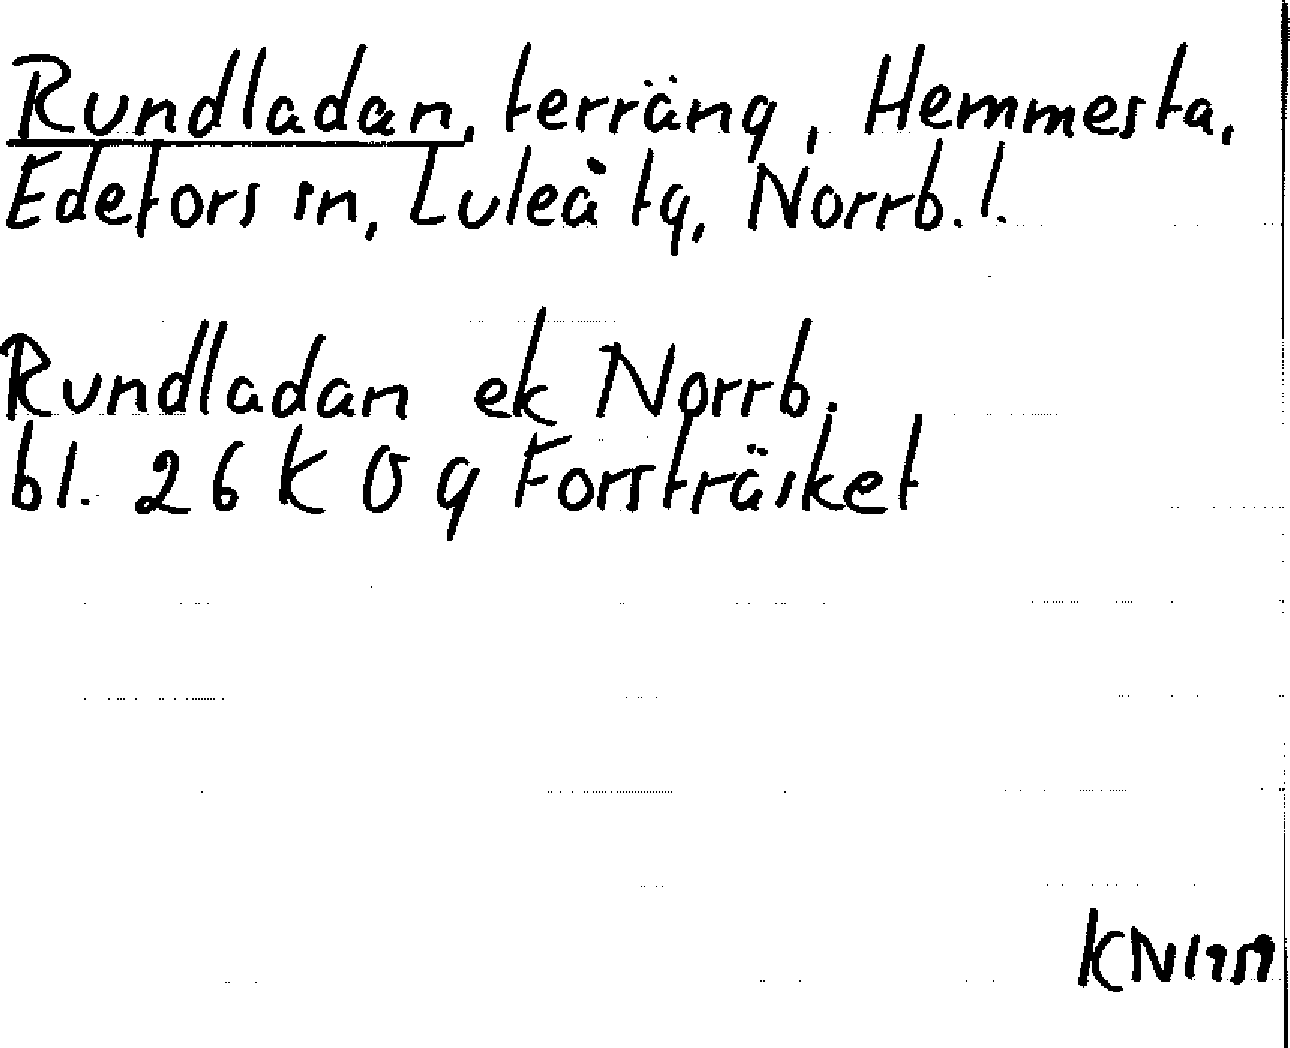 Rundladan, terräng, Hemmesta,
Edefors sn, Luleå tg, Norrb. l.
Rundladan ek Norrb.
bl. 26 K 0 g Forsträsket